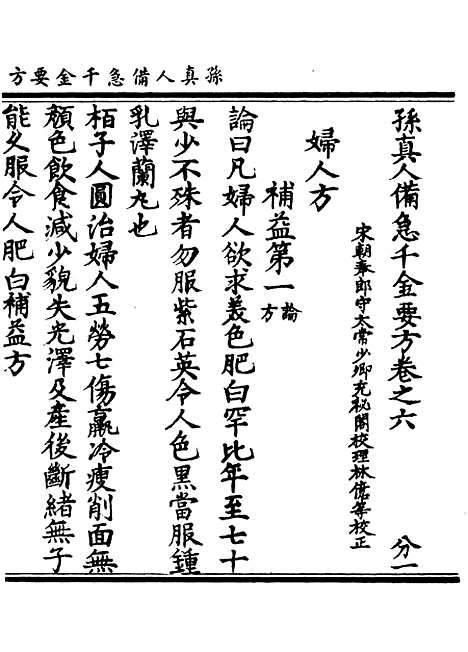 孫真人備急千金要方
孫真人備急千金要方卷之六 分一
宋朝奉郎守太常少卿充秘閣校理林億等校正
婦人方
補益第一 論方
論曰凡婦人欲求美色肥白罕比年至七十
與少不殊者勿服紫石英令人色黑當服鍾
乳澤蘭丸也
栢子人圓治婦人五勞七傷羸冷瘦削面無
顏色飲食減少貌失光澤及產後斷緒無子
能久服令人肥白補益方